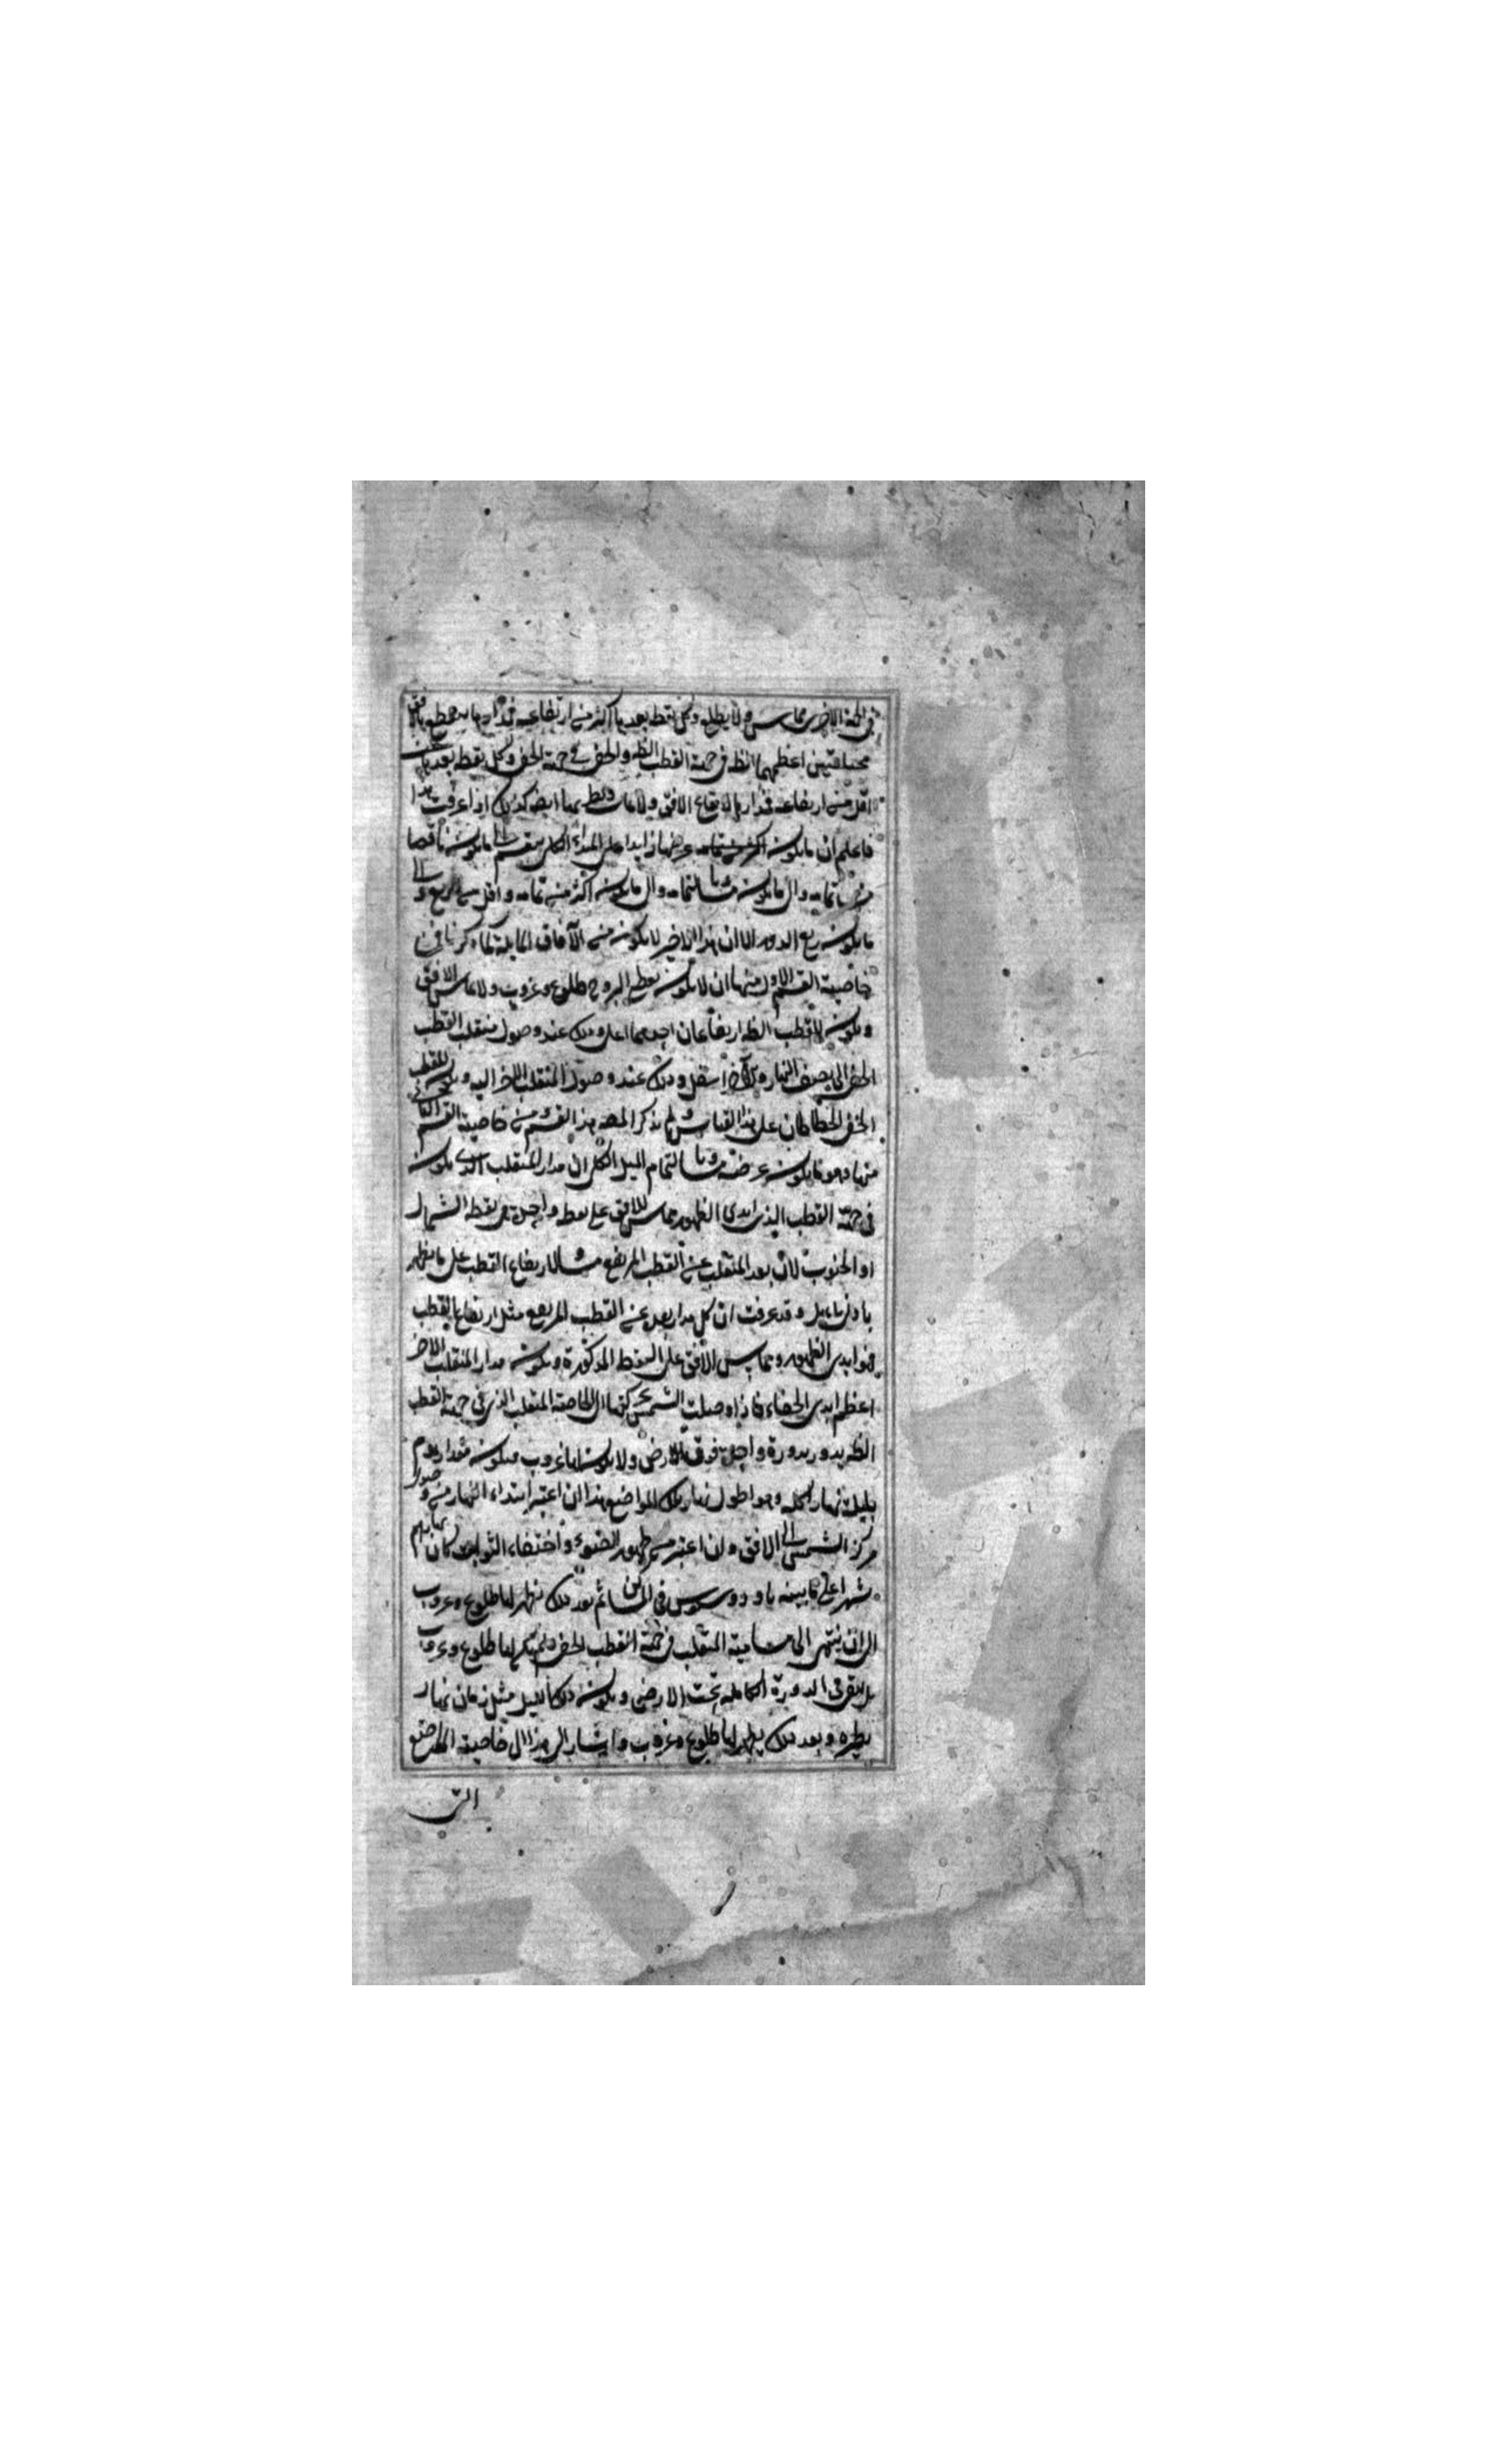 في الجهة الاخرى مماس ولا يطلع وكل نقطة بعدها اكثر من ارتفاعه فمدارها
مختلفتين اعظمهما الظ في جهة القطب الظ والخفي في جهة الخفي وكل نقطة بعدها عنه
اقل من ارتفاعه فمدارها لا يقاطع الافق ولا يماس ايضا كذلك اذا عرفت هذا
فاعلم ان ما يكون عرضها زايدا على الميل الكلي ينقسم الى ما يكون ناقصا
من تمامه والى ما يكون مساويا لتمامه والى ما يكون اكثر من تمامه واقل من الربع والى
ما يكون ربع الدور الا ان هذا الاخير لا يكون من الآفاق المايلة كما ذكرنا فمن
خاصية القسم الاول منها ان لا يكون لقطبي البروج طلوع وغروب ولا يماس الافق
ويكون للقطب الظ ارتفاعان احدهما اعلى وذلك عند وصول منقلب القطب
الخفي الى نصف النهار والآخر اسفل وذلك عند وصول المنقلب الاخر اليه ويكون للقطب
الخفي انحطاطان على هذا القياس ولم يذكر المص هذا القسم من خاصية القسم الثاني
منها وهو ما يكون عرضه مساويا لتمام الميل الكلي ان مدار المنقلب الذي يكون
في جهة القطب الذي ابدي الظهور مماس للافق على نقطة واحدة هي نقطة الشمال
او الجنوب لان بعد المنقلب عن القطب المرتفع مساو لارتفاع القطب على ما يظهر
بادنى تامل وقد عرفت ان كل مدار بعده عن القطب المرتفع مثل ارتفاع القطب
فهو ابدي الظهور ومماس الافق على النقط المذكورة ويكون مدار المنقلب الاخر
اعظم ابدي الخفاء فاذا وصلت الشمس بحركتها الخاصة المنقلب الذي في جهة القطب
الظ يدور بدورة واحدة فوق الارض ولا يكون لها غروب فيكون مقدار يوم
بليلته نهارا كله وهو اطول نهار تلك المواضع هذا ان اعتبر ابتداء النهار من وصول
مركز الشمس الى الافق وان اعتبر من ظهور الضوء واختفاء الثوابت كان نهارهم
شهرا على ما بينه ثاودوسيوس في المساكن ثم بعد ذلك يظهر لها طلوع وغروب
الى ان ينتهي الى مسامتة المنقلب في جهة القطب الخفي ولم يكن لها طلوع وغروب
بل يبقى في الدورة الكاملة تحت الارض ويكون ذلك الليل مثل زمان نهار
نظيره وبعد ذلك يظهر لها طلوع وغروب واشار الى هذا الى خاصية المواضع
التي